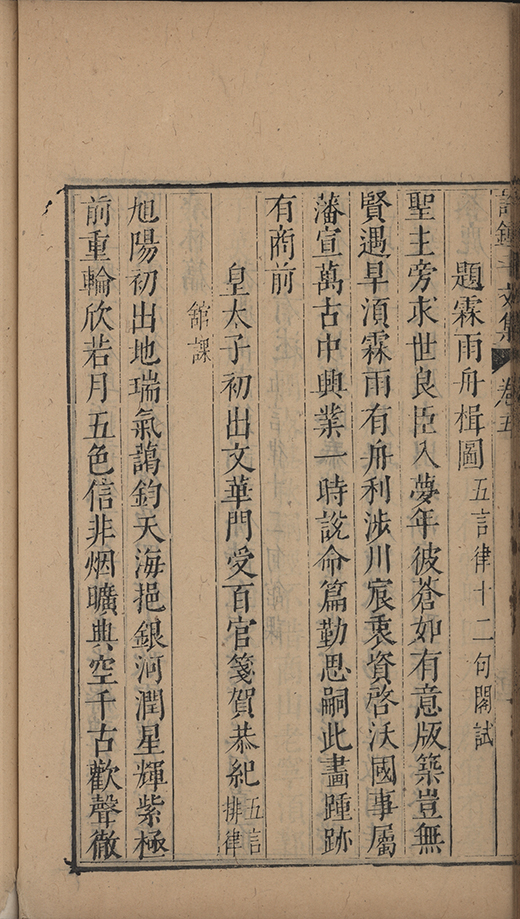 許鍾斗文集 卷五
題霖雨舟楫圖 五言律十二句閣試
聖主旁求世良臣入夢年彼蒼如有意版築豈無
賢遇旱須霖雨有舟利涉川宸衷資啓沃國事屬
藩宣萬古中興業一時說命篇勤思嗣此畫踵跡
有商前
皇太子初出文華門受百官箋賀恭紀 五言排律
舘課
旭陽初出地瑞氣藹鈞天海挹銀河潤星輝紫極
前重輪欣若月五色信非烟曠典空千古歡聲徹